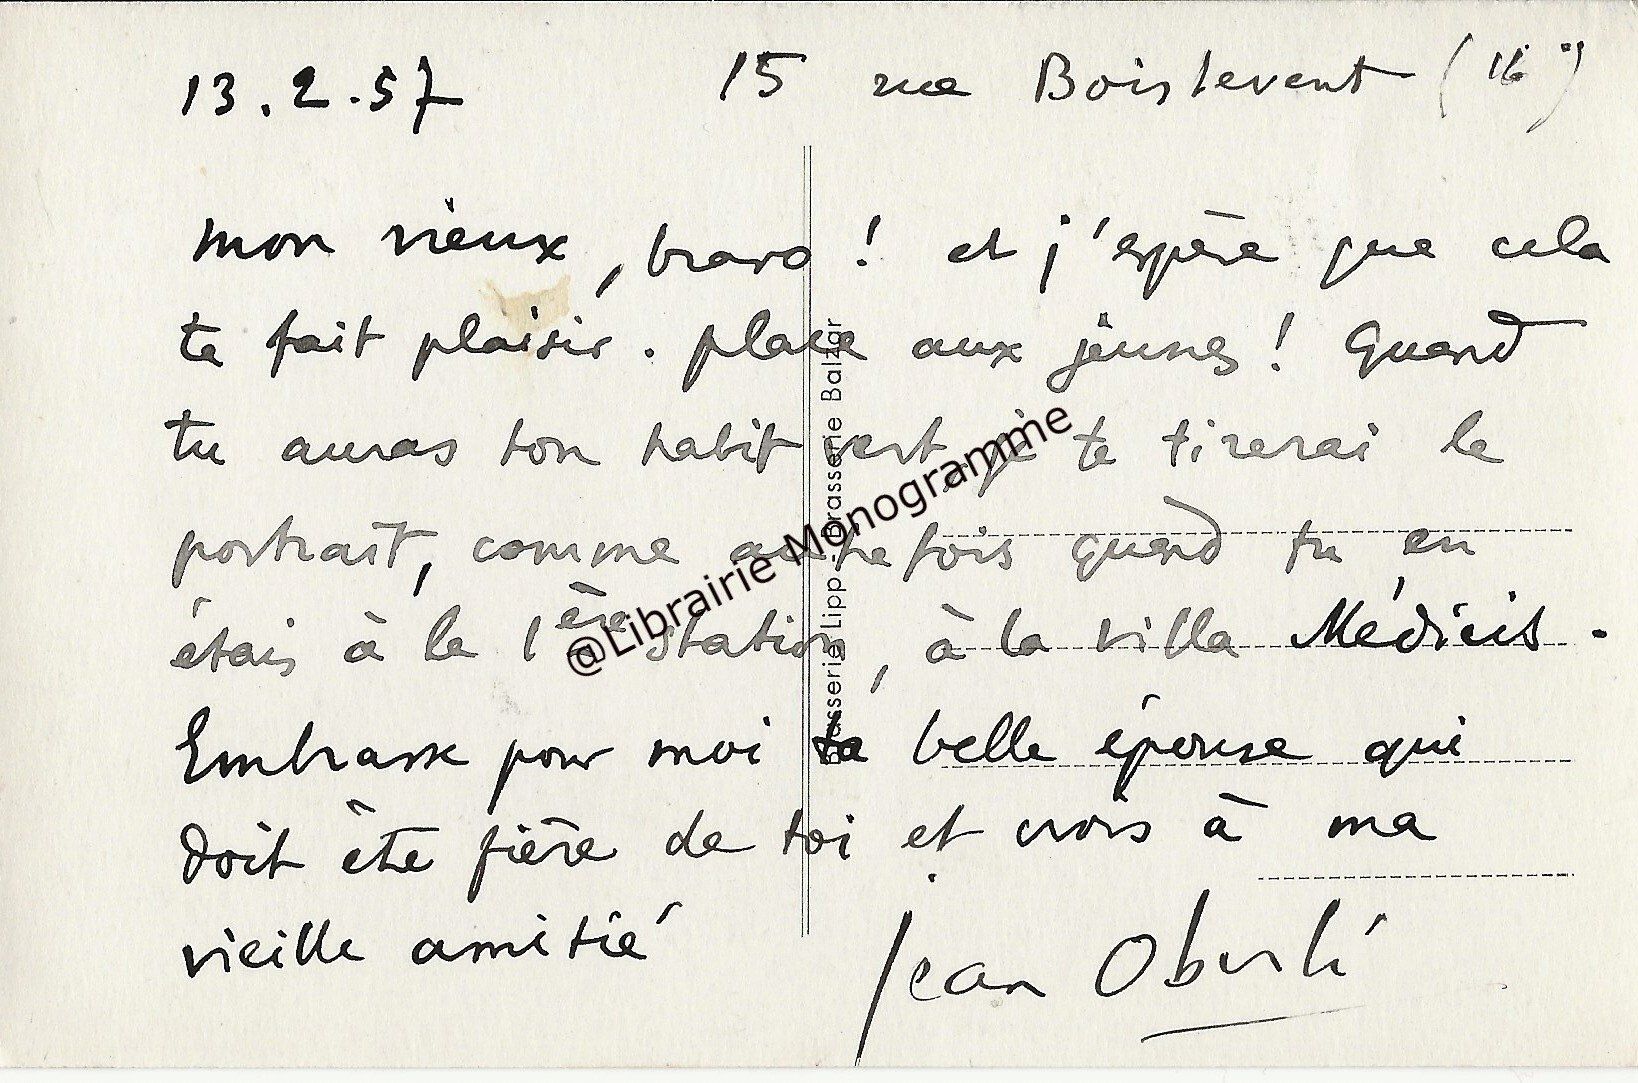 13.2.57 15 rue Boislevent (16°)
mon vieux, bravo ! et j'espère que cela
te fait plaisir. place aux jeunes ! Quand
tu auras ton habit vert, je te tirerai le
portrait, comme autrefois quand tu en
étais à la 1ère station, à la villa Médicis.
Embrasse pour moi ta belle épouse qui
doit être fière de toi et crois à ma
vieille amitié
Jean Oberlé
Brasserie Lipp - Brasserie Balzar
@Librairie Monogramme